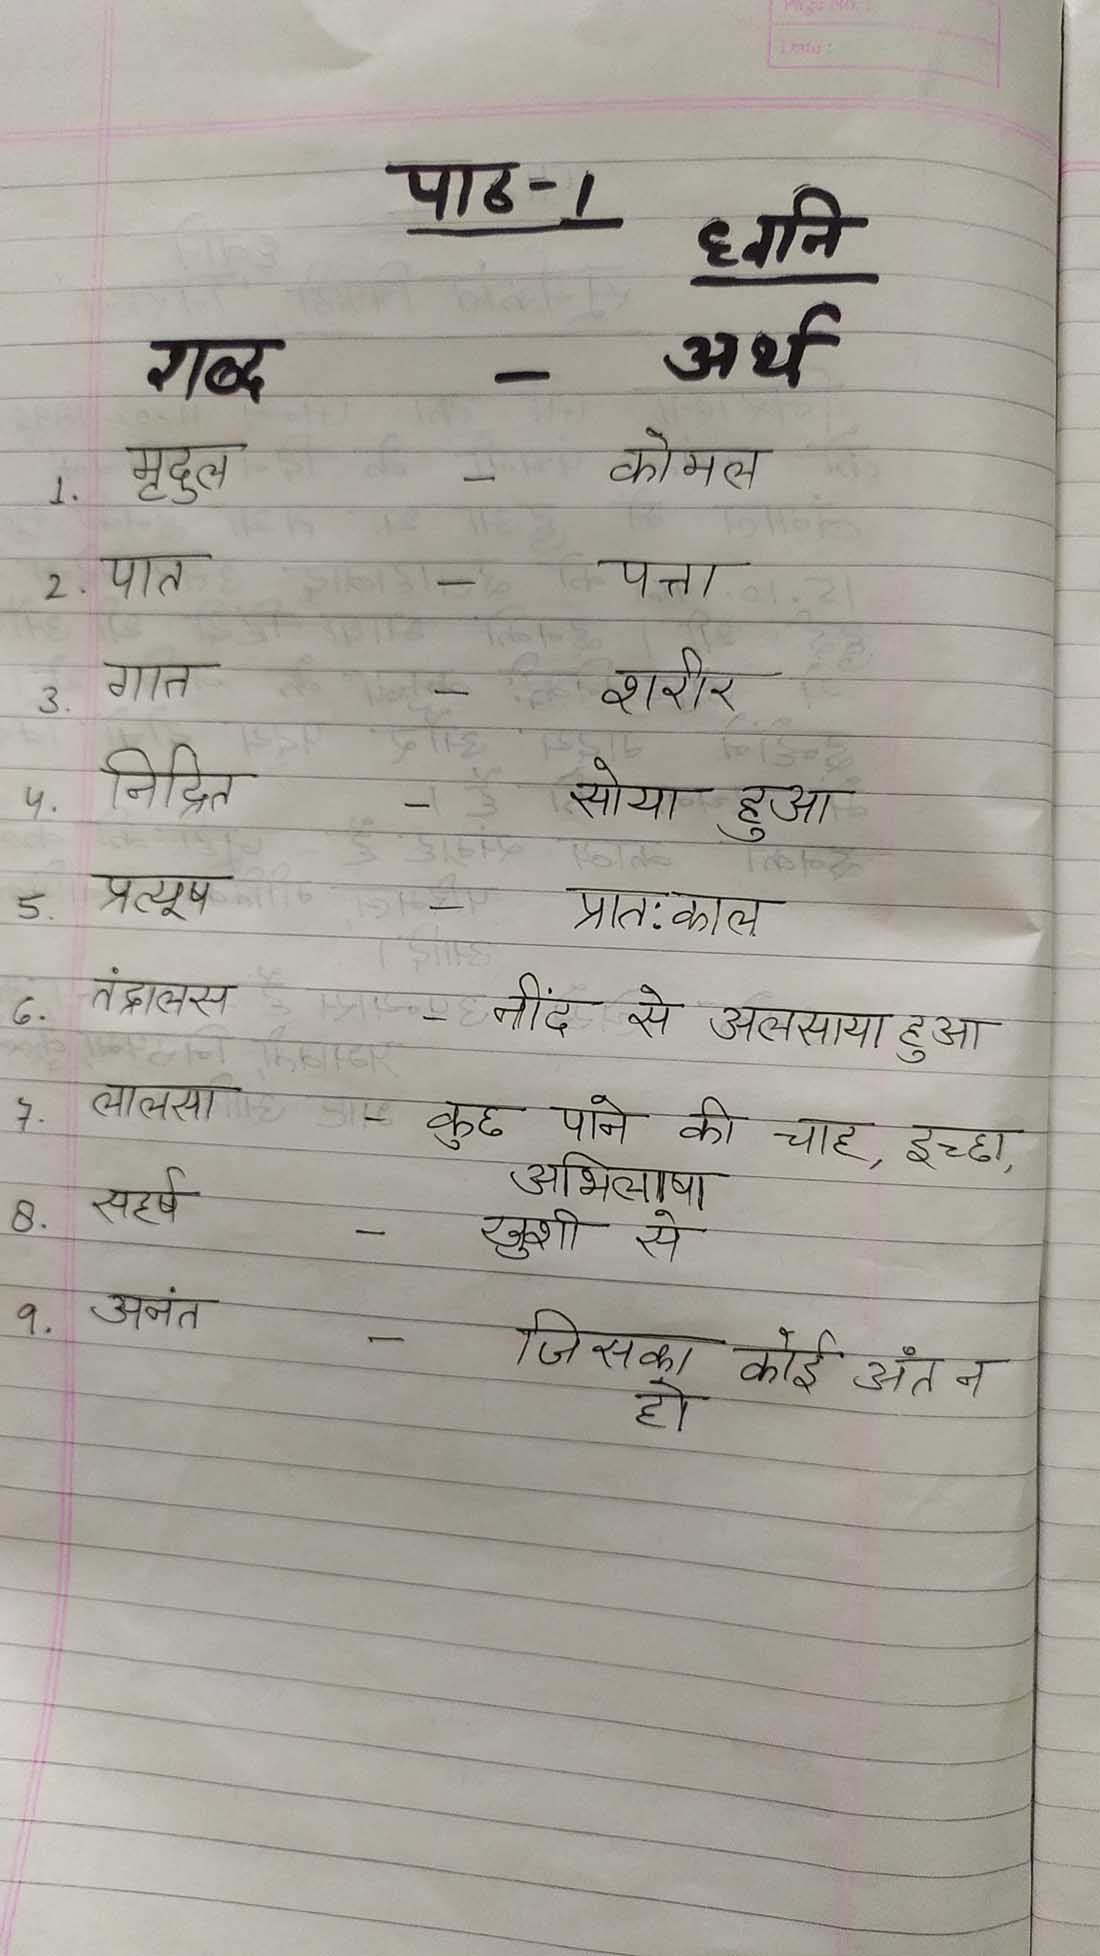 पाठ-1
ध्वनि
शब्द - अर्थ
1. मृदुल - कोमल
2. पात - पत्ता
3. गात - शरीर
4. निद्रित - सोया हुआ
5. प्रत्यूष - प्रात:काल
6. तंद्रालस - नींद से अलसाया हुआ
7. लालसा - कुछ पाने की चाह, इच्छा,
अभिलाषा
8. सहर्ष - खुशी से
9. अनंत - जिसका कोई अंत न
हो